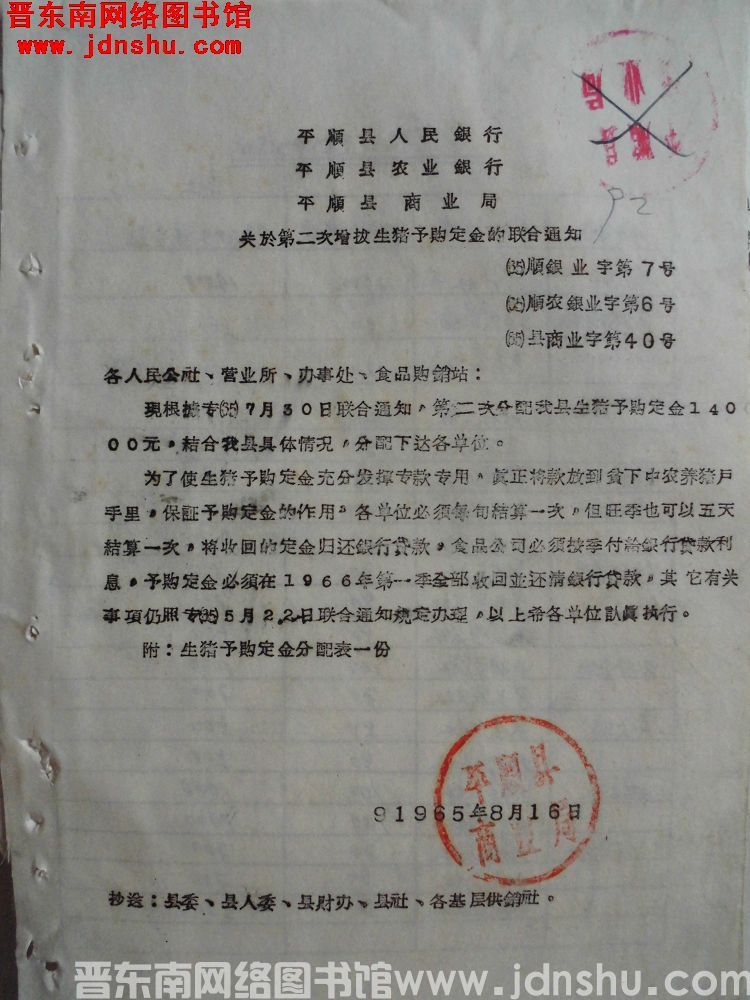 晋东南网络图书馆
www.jdnshu.com
平順县人民銀行
平順县农业銀行
平順县商业局
关於第二次增拔生猪予购定金的联合通知
(65)順銀业字第7号
(65)順农銀业字第6号
(65)县商业字第40号
各人民公社、营业所、办事处、食品购銷站：
現根据专(65)7月30日联合通知，第二次分配我县生猪予购定金140
00元，結合我县具体情况，分配下达各单位。
为了使生猪予购定金充分发揮专款专用，眞正将款放到贫下中农养猪户
手里，保証予购定金的作用。各单位必须每旬結算一次，但旺季也可以五天
結算一次，将收回的定金归还銀行貸款，食品公司必须按季付給銀行貸款利
息，予购定金必须在1966年第一季全部收回並还清銀行貸款，其它有关
事項仍照专(65)5月22日联合通知規定办理，以上希各单位訙眞执行。
附：生猪予购定金分配表一份
平順县
商业局
91965年8月16日
抄送：县委、县人委、县財办、县社、各基层供銷社。
晋东南网络图书馆www.jdnshu.com